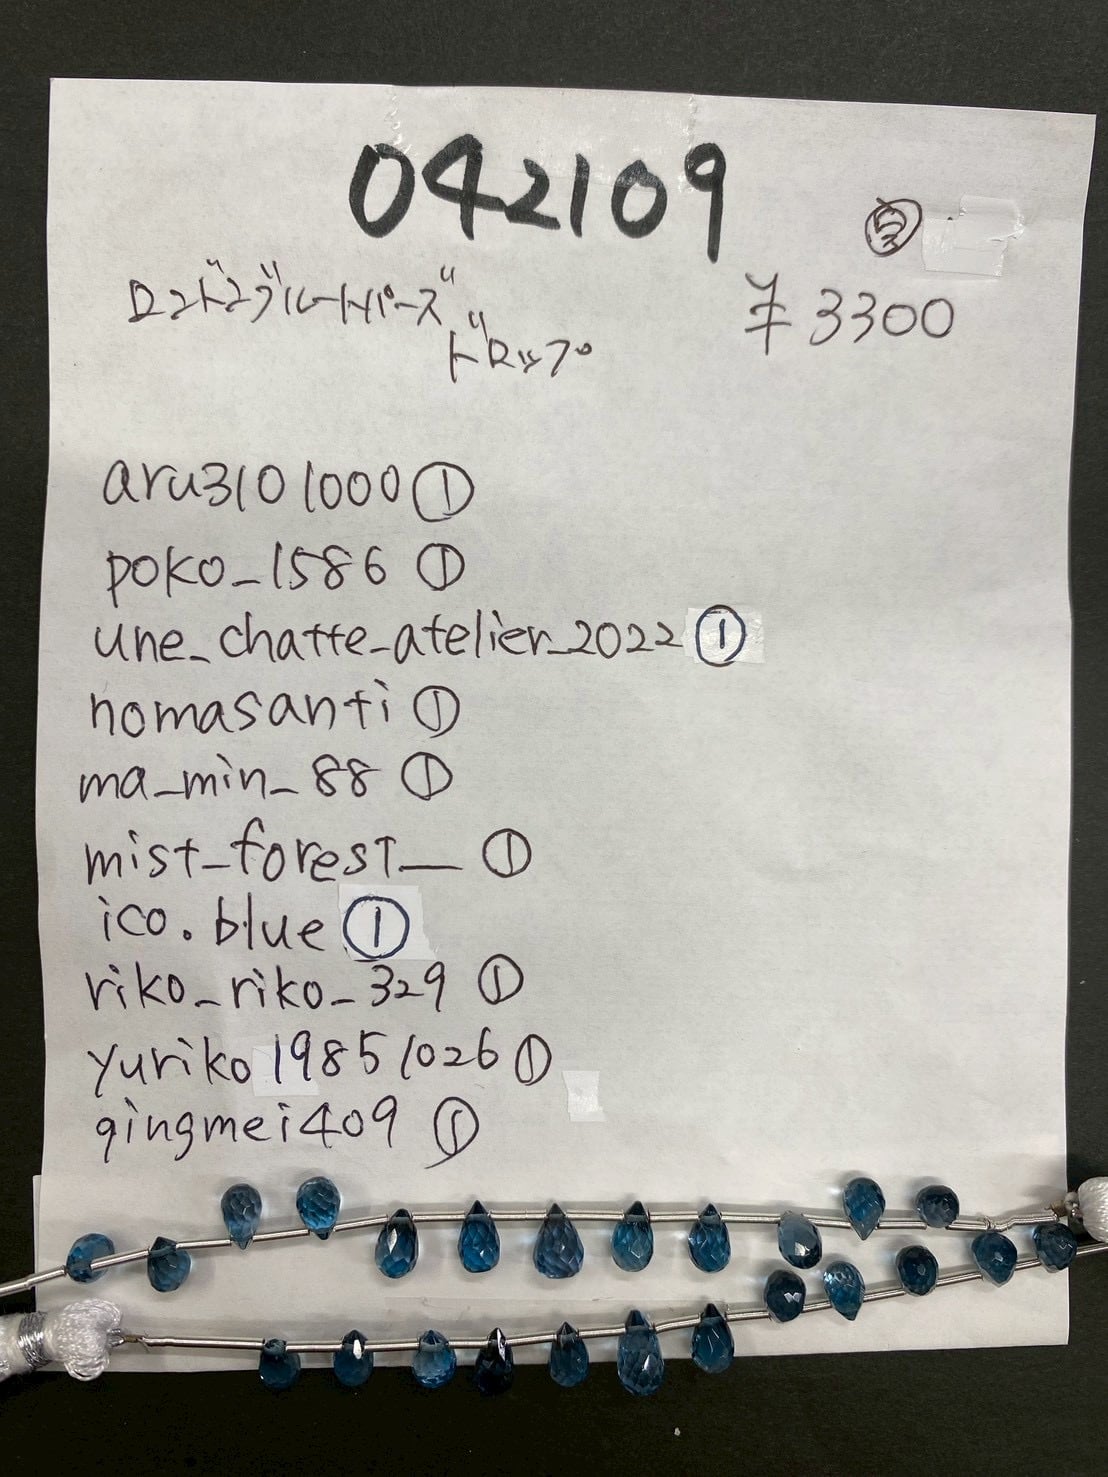 042109
ロンドンブルートパーズ ¥3300
ドロップ
aru3101000①
poko_1586 ①
une_chatte_atelier_2022①
nomasanti ①
ma_min_88 ①
mist_forest__ ①
ico.blue①
riko_riko_329 ①
yuriko19851026①
qingmei409 ①